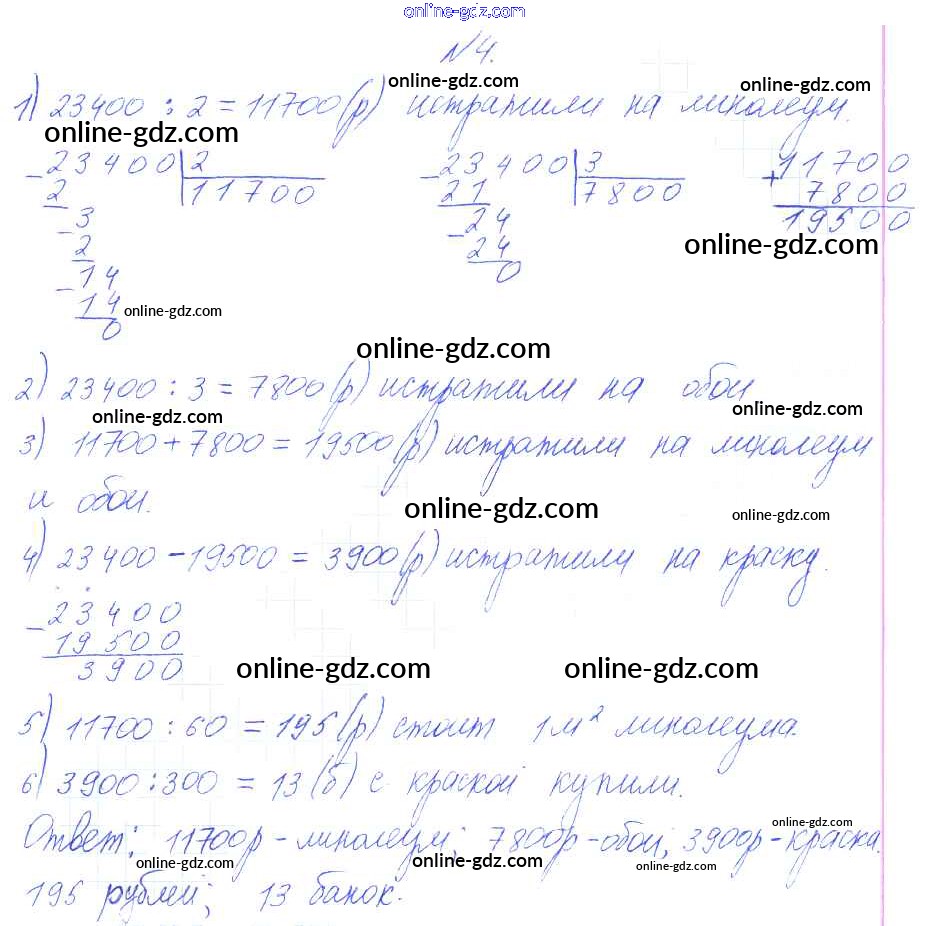 online-gdz.com
№4.
online-gdz.com
1) 23400 : 2 = 11700 (р) истратили на линолеум.
online-gdz.com
- 23400 | 2
2 | 11700
- 3
2
- 14
14
0
online-gdz.com
- 23400 | 3
21 | 7800
- 24
24
0
+ 11700
7800
19500
online-gdz.com
online-gdz.com
2) 23400 : 3 = 7800 (р) истратили на обои
online-gdz.com online-gdz.com
3) 11700 + 7800 = 19500 (р) истратили на линолеум
и обои.
online-gdz.com online-gdz.com
4) 23400 - 19500 = 3900 (р) истратили на краску.
- 23400
19500
3900
online-gdz.com online-gdz.com
5) 11700 : 60 = 195 (р) стоит 1 м² линолеума.
6) 3900 : 300 = 13 (б) с краской купили.
online-gdz.com
Ответ: 11700р - линолеум; 7800р - обои; 3900р - краска.
online-gdz.com online-gdz.com online-gdz.com
195 рублей; 13 банок.